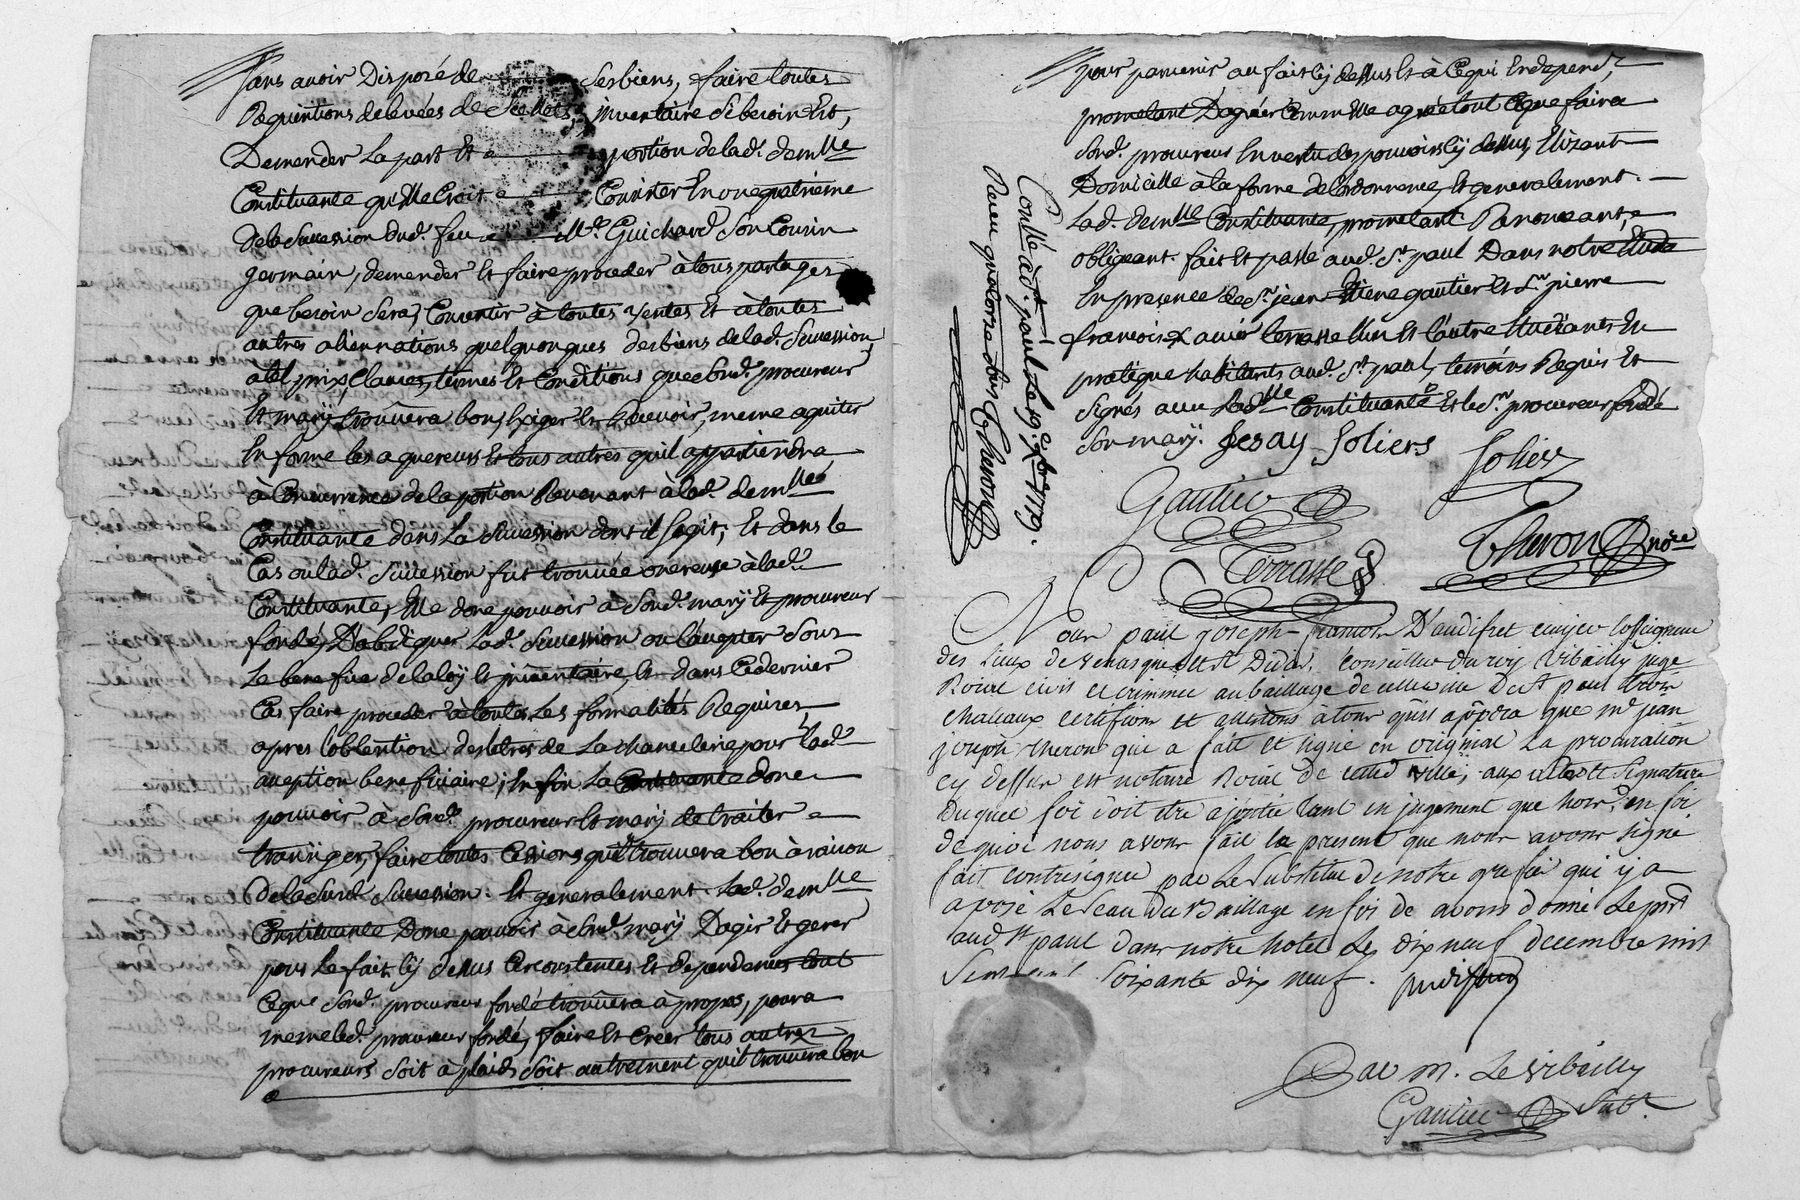 sans avoir Disposé de ses biens, faire toutes
Requisitions de levées de Scellés, inventaire si besoin Est,
Demender La part Et portion de lad. demlle
Constituante qu'elle Croit Consister En une quatrieme
de la Succession dud. feu Mr. Guichard Son Cousin
germain, demender Et faire proceder à tous partages
que besoin Sera, Consentir à toutes ventes Et à toutes
autres alienations quelquonques des biens de lad. Succession,
a tel prix, Clauses, termes Et Conditions que Sond. procureur
Et mary trouvera bon, Exiger Et Recevoir, meme aquiter
En forme les aquereurs Et tous autres qu'il appartiendra
à Concurrence de la portion Revenant à lad. demlle
Constituante dans La Succession dont il Sagit, Et dans le
Cas ou lad. Succession fut trouvée onereuse à lad.
Constituante, Elle done pouvoir à Sond. mary Et procureur
fondé, D'abdiquer lad. Succession ou l'accepter Sous
Le benefice de la loy Et inventaire, Et dans Ce dernier
Cas faire proceder à toutes Les formalités Requises
apres l'obtention des letres de La chancelerie pour lad.
acception beneficiaire, En fin La Constituante done
pouvoir à Sond. procureur Et mary de traiter
transiger, faire toutes Cessions qu'il trouvera bon à raison
de la Susd. Succession. Et generalement lad. demlle
Constituante Done pouvoir à Sond. mary D'agir Et gerer
pour Le fait Cy dessus Circonstences Et dependences tout
Ce que Sond. procureur fondé trouvera à propos, poura
meme led. procureur fondé, faire Et Creer tous autres
procureurs Soit à plaids Soit autrement qu'il trouvera bon
pour parvenir au fait Cy dessus Et à Ce qui En depend,
prometant D'agréer Comm'Elle agrée tout Ce que faira
Sond. procureur En vertu des pouvoirs Cy dessus, Elizant
Domicille à la forme de l'ordonnence, Et generalement
Lad. demlle Constituante, prometant Renonceant,
obligeant. fait Et passé aud. St. paul Dans notre Etude
En presence de Sr. jean Etiene gautier Et Sr. pierre
françois Xavier terrasse l'un Et l'autre Etudiants En
pratique habitants aud. St. paul, temoins Requis Et
Signés avec Ladlle Constituante Et le Sr. procureur fondé
Son mary. Jesay Soliers Solier
Gautier
Theron nore
Terrasse
Conllé à St. paul Le 19e Xbre 1779.
Receu quatorze Sous Theron
Nous paul joseph françois D'audifret ecuyer Cosseigneur
des Lieux de venasque et St Didier, Conseiller du roy vibailly juge
Roial civil et criminel au baillage de cette ville De St paul trois
chateaux certifions et attestons à tous qu'il apdra que me jean
joseph theron qui a fait et signé en original La procuration
cy dessus est notaire Roial de cetted ville, aux actes et Signature
Duquel foi doit etre ajoutée tant en jugement que hors, en foi
de quoi nous avons fait le present que nous avons signé
fait contresigner par Le Substitut de notre grefier qui y a
aposé Le Seau du Baillage en foi de avons donné Le prst
aud St paul dans notre hotel Le dix neuf decembre mil
Sept cent Soixante dix neuf. Audifret
Par M. Le vibailly
Gautier Subt.